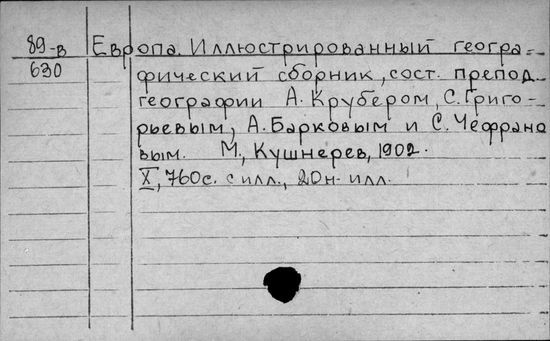 89-в Европа. Иллюстрированный геогра-
630 фический сборник, сост. препод.
географии А. Крубером, С. Григо-
рьевым, А. Барковым и С. Чефрано
вым. М., Кушнерев, 1902.
X, 760с. с илл., 20н. илл.